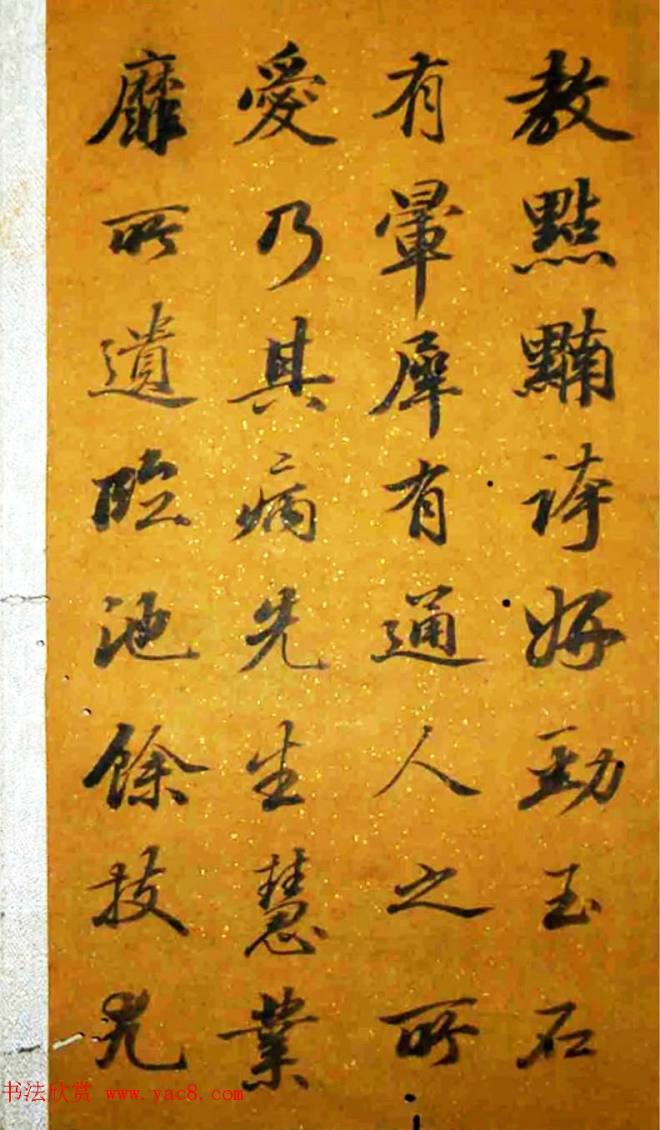 教點誇妍勁玉石
有暈犀有通人之所
愛乃其病先生慧業
靡所遺臨池餘技尤
书法欣赏 www.yac8.com